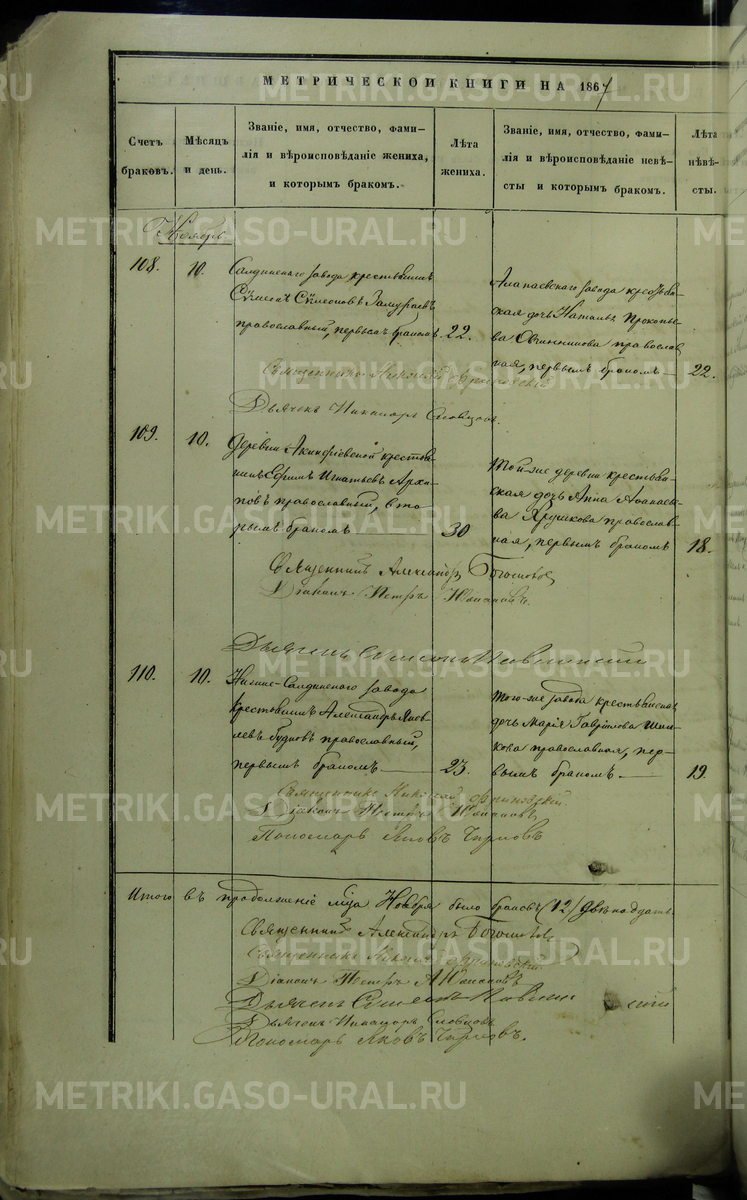 МЕТРИЧЕСКОЙ КНИГИ НА 1867
Счетъ браковъ.
Мѣсяцъ и день.
Званіе, имя, отчество, фами-
лія и вѣроисповѣданіе жениха,
и которымъ бракомъ.
Лѣта жениха.
Званіе, имя, отчество, фами-
лія и вѣроисповѣданіе невѣ-
сты и которымъ бракомъ.
Лѣта невѣ-
сты.
Ноябрь
108. 10.
Салдинскаго завода крестьянинъ
Сѵмеонъ Сѵмеоновъ Замураевъ
православный, первымъ бракомъ 22.
Алапаевскаго завода крестьян-
ская дочь Наталья Прокопье-
ва Овчинникова православ
ная, первымъ бракомъ 22.
Священникъ Николай
Дьячекъ Никаноръ Словцовъ.
109. 10.
Деревни Акинфіевской крестья-
нинъ Ефимъ Игнатьевъ Архи-
повъ православный, вто-
рымъ бракомъ 30
Той-же деревни крестьян-
ская дочь Анна Аѳанасье-
ва Ярушкова православ-
ная, первымъ бракомъ 18.
Священникъ Александръ Богословъ
Діаконъ Петръ
Дьячекъ Симеонъ
110. 10.
Нижне-Салдинскаго завода
крестьянинъ Александръ Яков-
левъ православный,
первымъ бракомъ 23.
Того-же завода крестьянская
дочь Марія Гаврилова Шиш-
кова православная, пер-
вымъ бракомъ 19.
Священникъ Николай
Діаконъ Петръ
Пономарь Яковъ
Итого въ продолженіе мца Ноября было браковъ (12) двѣнадцать.
Священникъ Александръ Богословъ
Священникъ Николай
Діаконъ Петръ
Дьячекъ Симеонъ
Дьячекъ Никаноръ Словцовъ
Пономарь Яковъ
METRIKI.GASO-URAL.RU